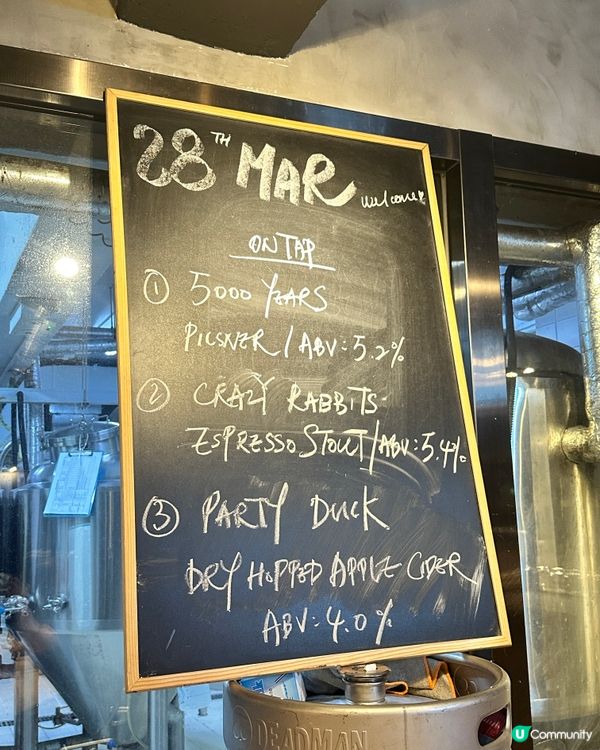 28TH MAR welcome
ON TAP
① 5000 YEARS
PILSNER / ABV: 5.2%
② CRAZY RABBITS
ESPRESSO STOUT / ABV: 5.4%
③ PARTY DUCK
DRY HOPPED APPLE CIDER
ABV: 4.0%
DEADMAN
U Community